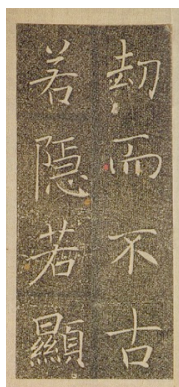 劫而不古
若隱若顯